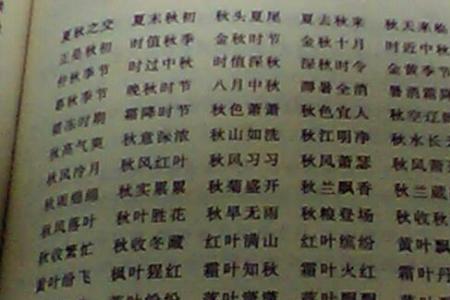 夏秋之交 夏末秋初 秋头夏尾 夏去秋来 秋天来临
正是秋初 时值秋季 金秋时节 金秋十月 时近中秋
仲秋季节 时过中秋 时值深秋 深秋时令 金黄季节
暮秋季节 晚秋时节 八月中秋 溽暑全消 暑消霜降
霜冻时期 霜降时节 秋色萧萧 秋色宜人 秋空辽
秋高气爽 秋意深浓 秋山如洗 秋江明净 秋水长天
秋风冷月 秋风红叶 秋风习习 秋风萧瑟 秋风萧
秋雨绵绵 秋实累累 秋菊盛开 秋兰飘香 秋兰
秋风落叶 秋叶胜花 秋旱无雨 秋粮登场 秋收秋
秋收繁忙 秋收冬藏 红叶满山 红叶缤纷 黄叶飘
黄叶纷飞 枫叶猩红 霜叶知秋 霜叶火红 霜叶丹